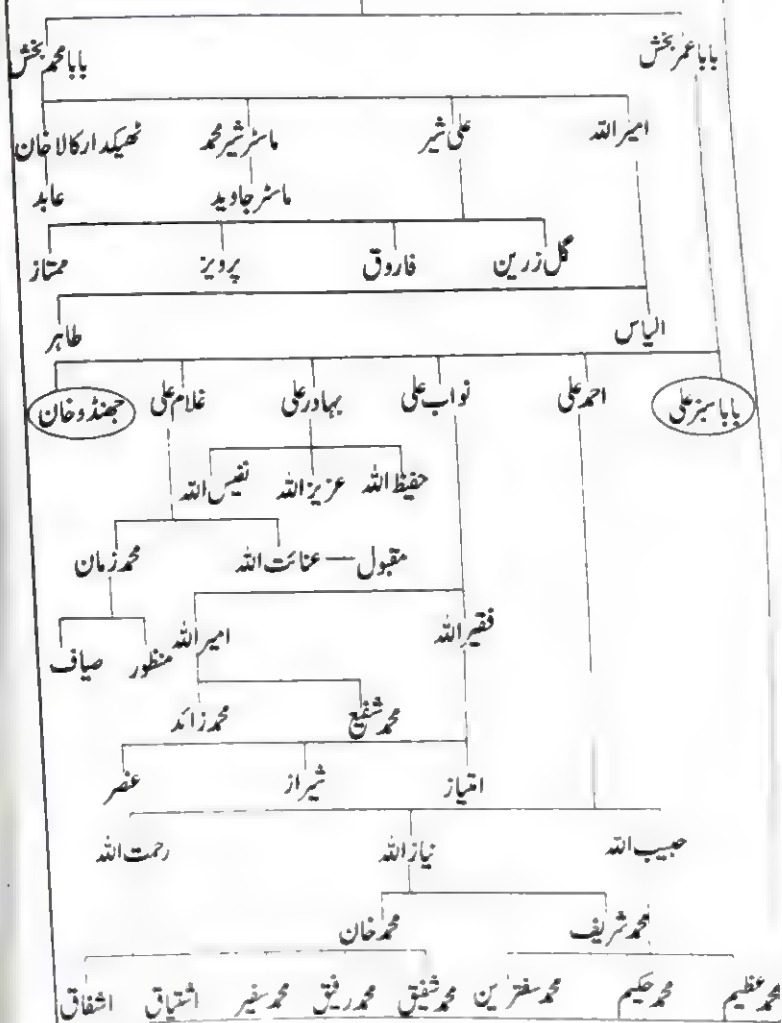 بابا عمر بخش بابا محمد بخش
امیر اللہ علی شیر ماسٹر شیر محمد ٹھیکدار کالا خان
ماسٹر جاوید عابد
گل زرین فاروق پرویز ممتاز
الیاس طاہر
بابا سبز علی احمد علی نواب علی بہادر علی غلام علی جھنڈو خان
حفیظ اللہ عزیز اللہ نفیس اللہ
مقبول — عنائت اللہ محمد زمان
فقیر اللہ امیر اللہ منظور صیاف
محمد شفیع محمد زائد
امتیاز شیراز عنصر
حبیب اللہ نیاز اللہ رحمت اللہ
محمد شریف محمد خان
محمد عظیم محمد حکیم محمد سفترین محمد شفیق محمد رفیق محمد سفیر اشتیاق اشفاق